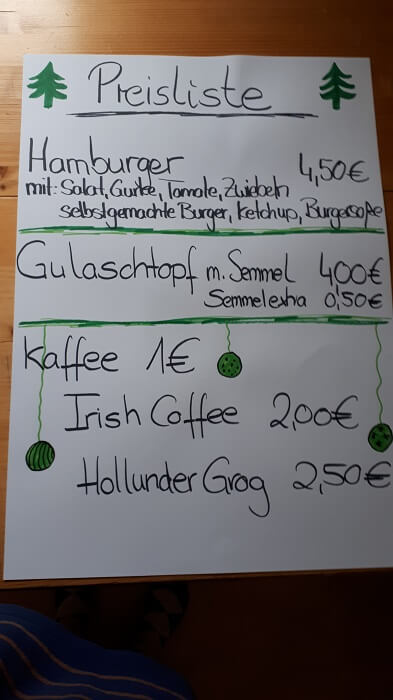 Preisliste
Hamburger 4,50€
mit: Salat, Gurke, Tomate, Zwiebeln
selbstgemachte Burger, Ketchup, Burgersoße
Gulaschtopf m. Semmel 4,00€
Semmel extra 0,50€
Kaffee 1€
Irish Coffee 2,00€
Hollunder Grog 2,50€